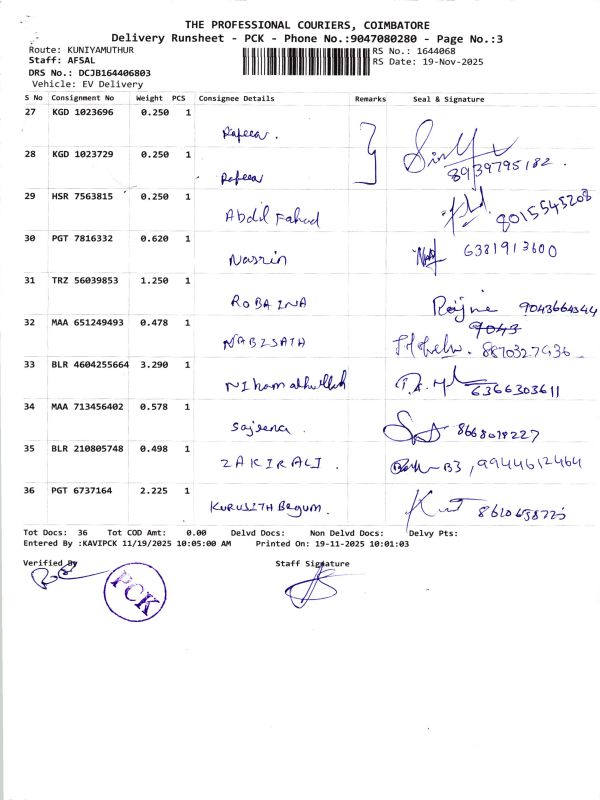 THE PROFESSIONAL COURIERS, COIMBATORE
Delivery Runsheet - PCK - Phone No.:9047080280 - Page No.:3
Route: KUNIYAMUTHUR
RS No.: 1644068
Staff: AFSAL
RS Date: 19-Nov-2025
DRS No.: DCJB164406803
Vehicle: EV Delivery
S No Consignment No Weight PCS Consignee Details Remarks Seal & Signature
27 KGD 1023696 0.250 1 Rafeea.
28 KGD 1023729 0.250 1 Rafeea 8939795182.
29 HSR 7563815 0.250 1 Abdil Fahad 8015545208
30 PGT 7816332 0.620 1 Nasrin 6381913600
31 TRZ 56039853 1.250 1 ROBAINA 9043664344
9043
32 MAA 651249493 0.478 1 NABISATH 8870327936
33 BLR 4604255664 3.290 1 Nihamathullah 6366303611
34 MAA 713456402 0.578 1 Sajeena. 8668018227
35 BLR 210805748 0.498 1 ZAKIRALI. B3, 9944612464
36 PGT 6737164 2.225 1 KURUSITH Begum.
Tot Docs: 36 Tot COD Amt: 0.00 Delvd Docs: Non Delvd Docs: Delvy Pts:
Entered By :KAVIPCK 11/19/2025 10:05:00 AM Printed On: 19-11-2025 10:01:03
Verified By Staff Signature
PCK